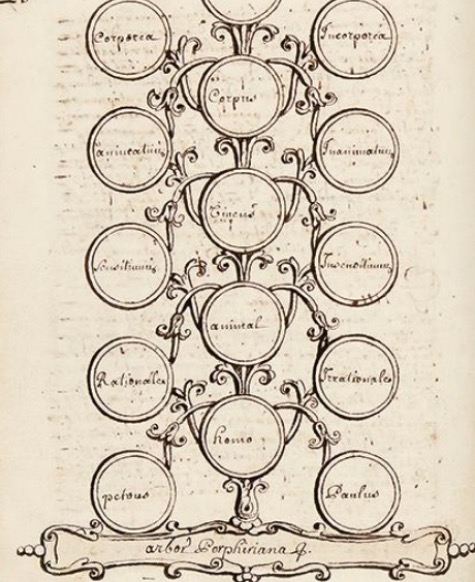 Corporea
Incorporea
Corpus
animatum
Inanimatum
Sensitiuum
Insensitiuum
animal
Rationale
Irrationale
homo
petrus
Paulus
arbor Porphiriana